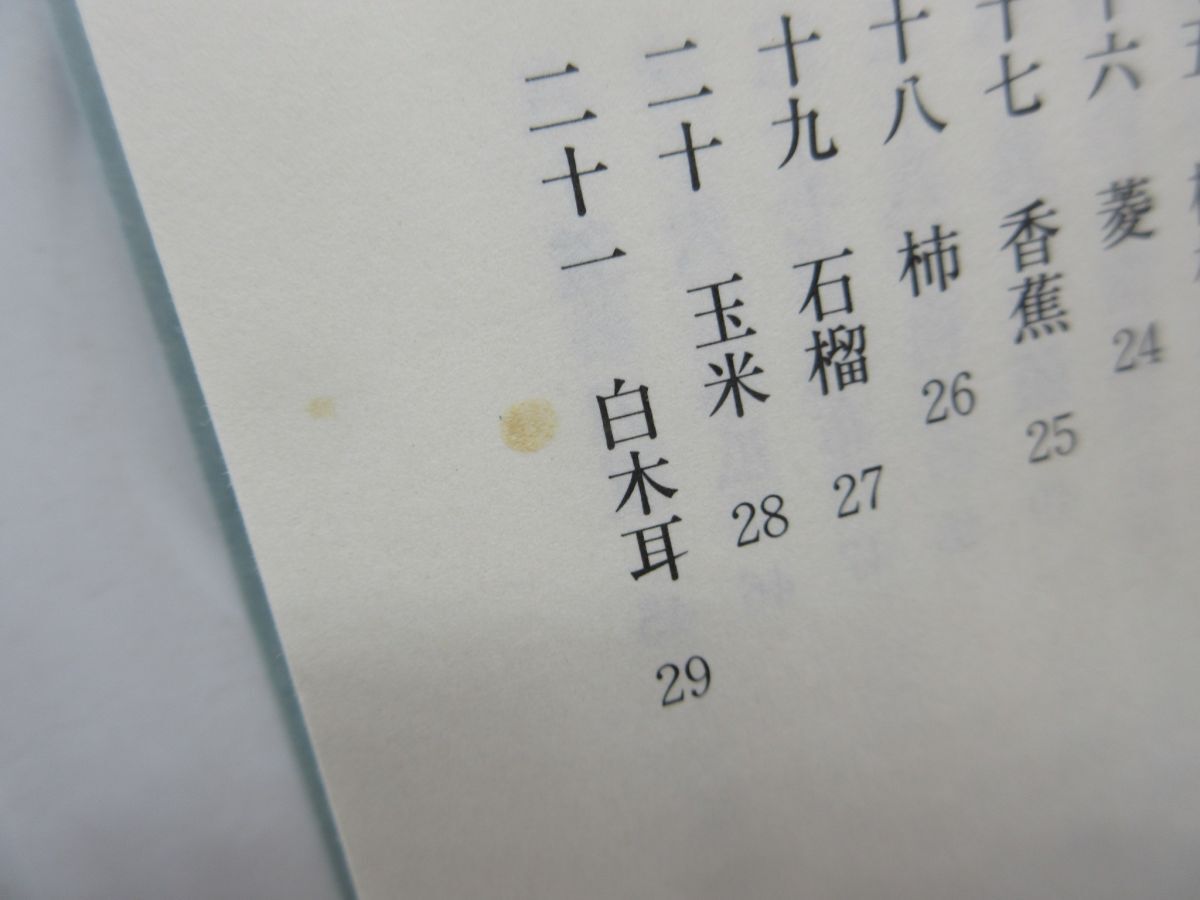 十六 菱 24
十七 香蕉 25
十八 柿 26
十九 石榴 27
二十 玉米 28
二十一 白木耳 29